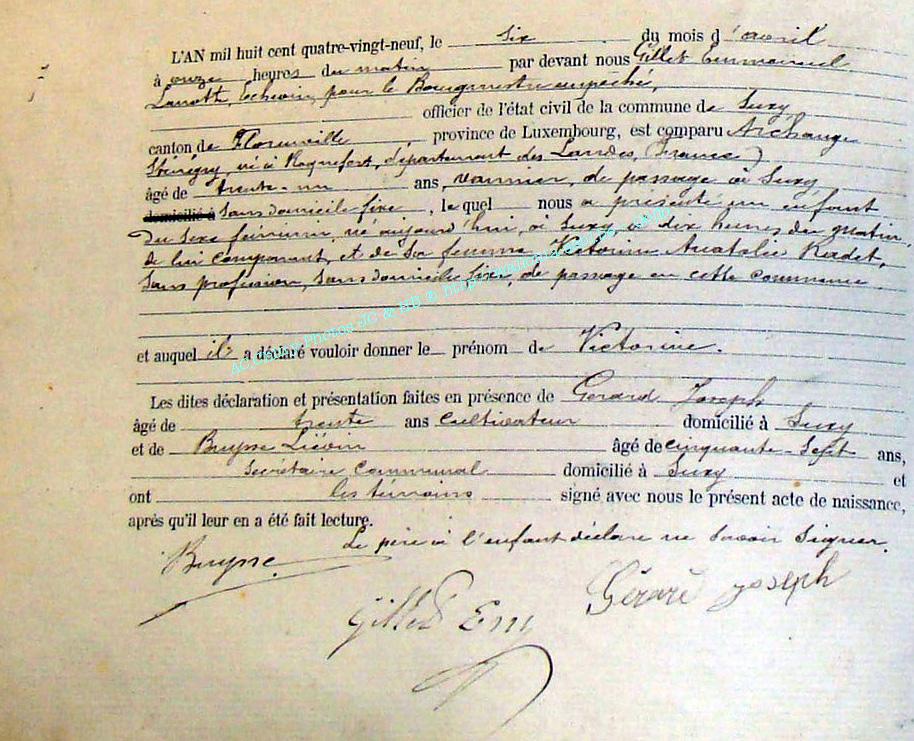 L'AN mil huit cent quatre-vingt-neuf, le six du mois d'avril
à onze heures du matin par devant nous Gillet Emmanuel
Echevin, pour le Bourgmestre empêché,
officier de l'état civil de la commune de Suxy
canton de Florenville, province de Luxembourg, est comparu Archange
né à Roquefort, département des Landes, (France)
âgé de trente-un ans, vannier, de passage à Suxy
domicilié à sans domicile fixe, le quel nous a présenté un enfant
du sexe féminin, né aujourd'hui, à Suxy à dix heures du matin,
de lui comparant, et de sa femme Victorine Anatalie Radet,
sans profession, sans domicile fixe, de passage en cette commune
et auquel il a déclaré vouloir donner le prénom de Victorine.
Les dites déclaration et présentation faites en présence de Gérard Joseph
âgé de trente ans cultivateur domicilié à Suxy
et de Buysse Liévin âgé de cinquante-sept ans,
Secrétaire Communal domicilié à Suxy et
ont les témoins signé avec nous le présent acte de naissance,
après qu'il leur en a été fait lecture.
Le père à l'enfant déclare ne savoir signer.
Buysse
Gérard Joseph
Gillet Em